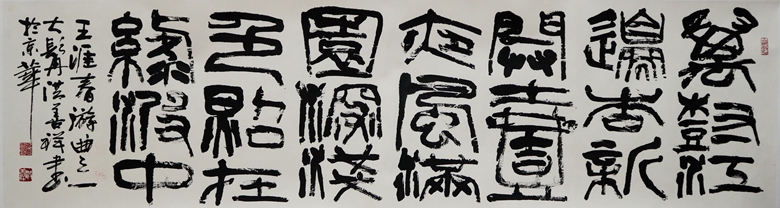 萬樹江
邊杏新
開壹
夜風滿
園深淺
色照在
綠波中
王涯春游曲之一
大髯洪善祥书
於京華